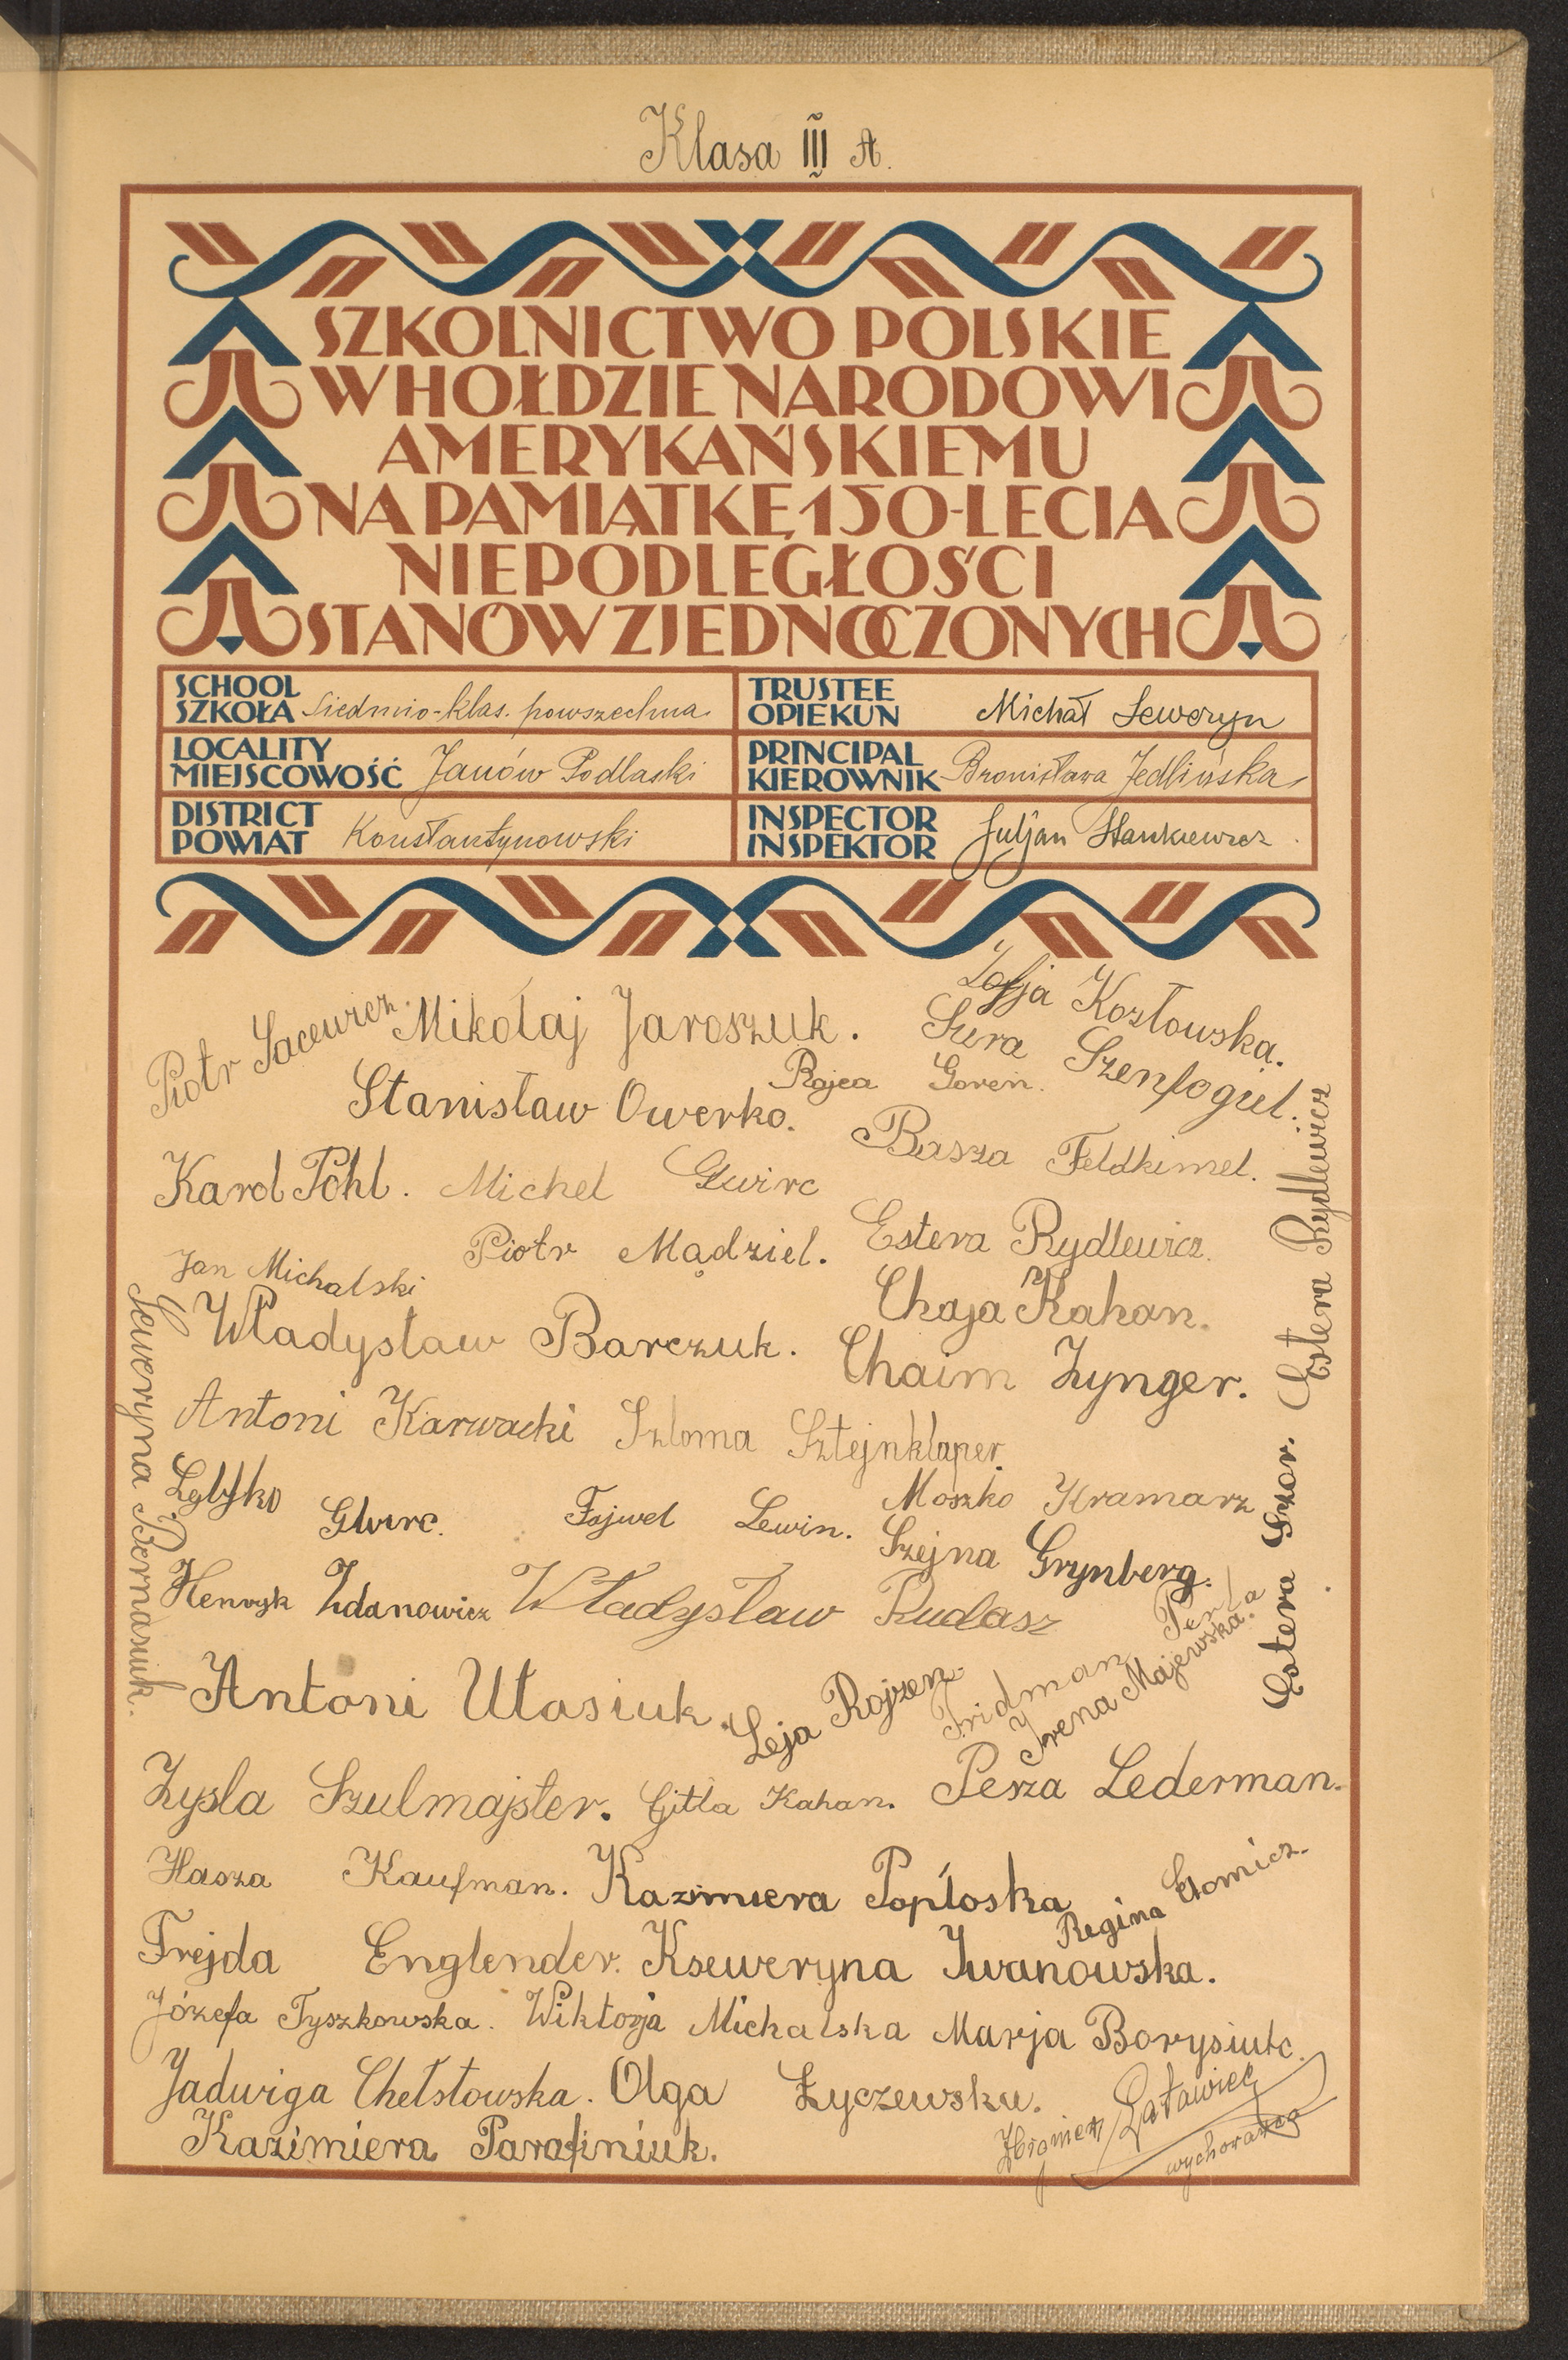 Klasa III A.
SZKOLNICTWO POLSKIE
W HOŁDZIE NARODOWI
AMERYKAŃSKIEMU
NA PAMIĄTKĘ 150-LECIA
NIEPODLEGŁOŚCI
STANÓW ZJEDNOCZONYCH
SCHOOL
SZKOŁA Siedmio-klas. powszechna
TRUSTEE
OPIEKUN Michał Seweryn
LOCALITY
MIEJSCOWOŚĆ Janów Podlaski
PRINCIPAL
KIEROWNIK Bronisława Jedlińska
DISTRICT
POWIAT Konstantynowski
INSPECTOR
INSPEKTOR Juljan Stankiewicz
Zofja Kozłowska.
Piotr Sacewicz.
Mikołaj Jaroszuk.
Sura Szenfogiel.
Rojca Goren.
Stanisław Owerko.
Basza Feldkimel.
Karol Pohl.
Michel Gwirc
Estera Rydlewicz.
Piotr Mądziel.
Jan Michalski
Chaja Kahan.
Władysław Barczuk.
Chaim Zynger.
Antoni Karwacki
Szloma Sztejnklaper.
Gwirc.
Fajwel Lewin.
Moszko Kramarz
Szejna Grynberg.
Henryk Zdanowicz
Władysław Rudasz
Antoni Ułasiuk.
Leja Rojzen.
Fridman Penla
Irena Majewska.
Seweryna Bernasiuk.
Estera Szor.
Estera Rydlewicz
Zysla Szulmajster.
Gitla Kahan.
Pesza Lederman.
Hasza Kaufman.
Kazimiera Popłoska
Regina
Frejda Englender.
Kseweryna Iwanowska.
Józefa Tyszkowska.
Wiktorja Michalska
Marja Borysiuk.
Jadwiga Chełstowska.
Olga Łyczewska.
Kazimiera Parafiniuk.
Latawiec